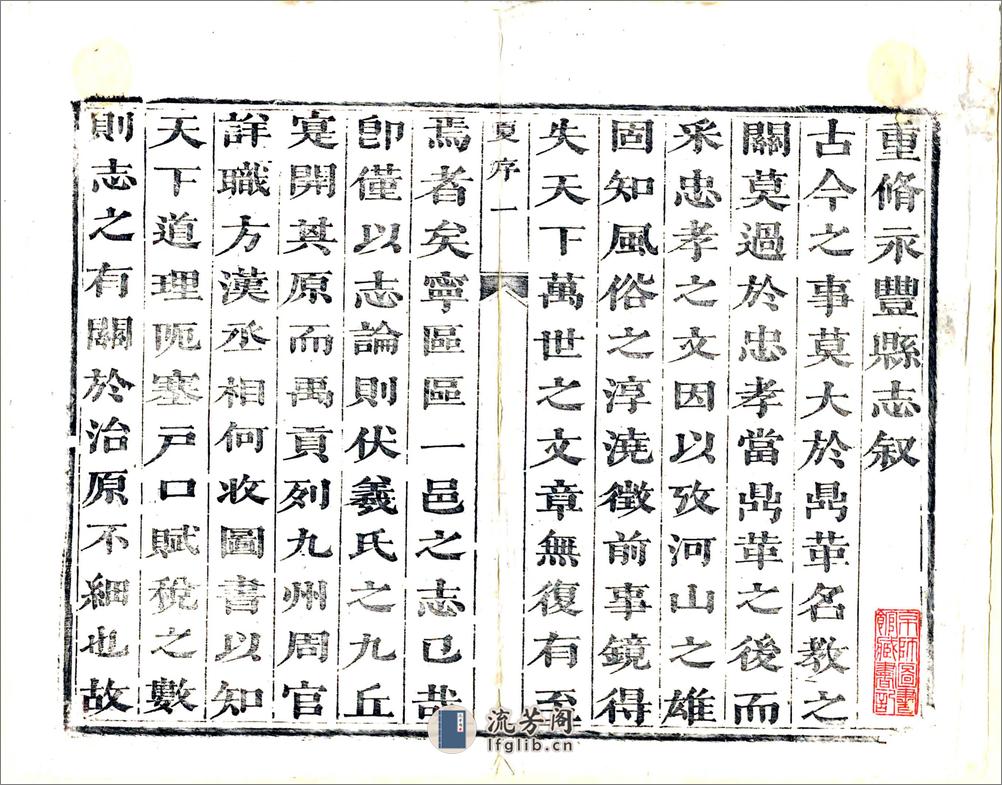 重脩永豐縣志叙
古今之事莫大於鼎革名教之
關莫過於忠孝當鼎革之後而
采忠孝之文因以攷河山之雄
固知風俗之淳澆徵前事鏡得
失天下萬世之文章無復有至
夏序 一
焉者矣寧區區一邑之志已哉
卽僅以志論則伏羲氏之九丘
寔開其原而禹貢列九州周官
詳職方漢丞相何收圖書以知
天下道理阨塞戸口賦稅之數
則志之有關於治原不細也故
流芳阁
lfglib.cn